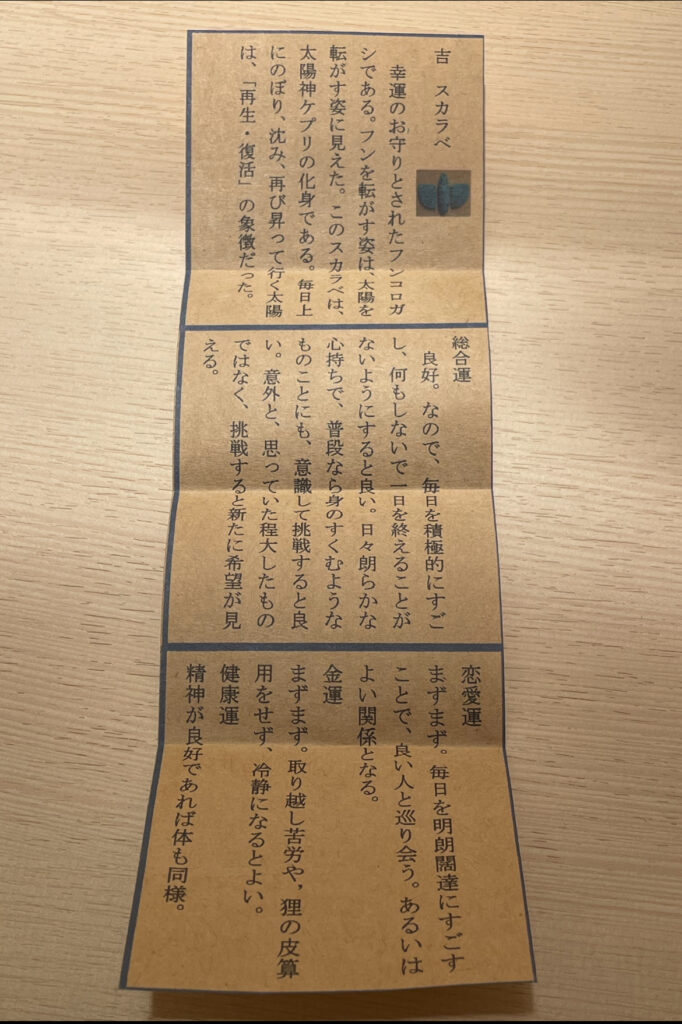 吉　スカラベ
幸運のお守りとされたフンコロガ
シである。フンを転がす姿は、太陽を
転がす姿に見えた。このスカラベは、
太陽神ケプリの化身である。毎日上
にのぼり、沈み、再び昇って行く太陽
は、「再生・復活」の象徴だった。
総合運
良好。なので、毎日を積極的にすご
し、何もしないで一日を終えることが
ないようにすると良い。日々朗らかな
心持ちで、普段なら身のすくむような
ものことにも、意識して挑戦すると良
い。意外と、思っていた程大したもの
ではなく、挑戦すると新たに希望が見
える。
恋愛運
まずまず。毎日を明朗闊達にすごす
ことで、良い人と巡り会う。あるいは
よい関係となる。
金運
まずまず。取り越し苦労や、狸の皮算
用をせず、冷静になるとよい。
健康運
精神が良好であれば体も同様。